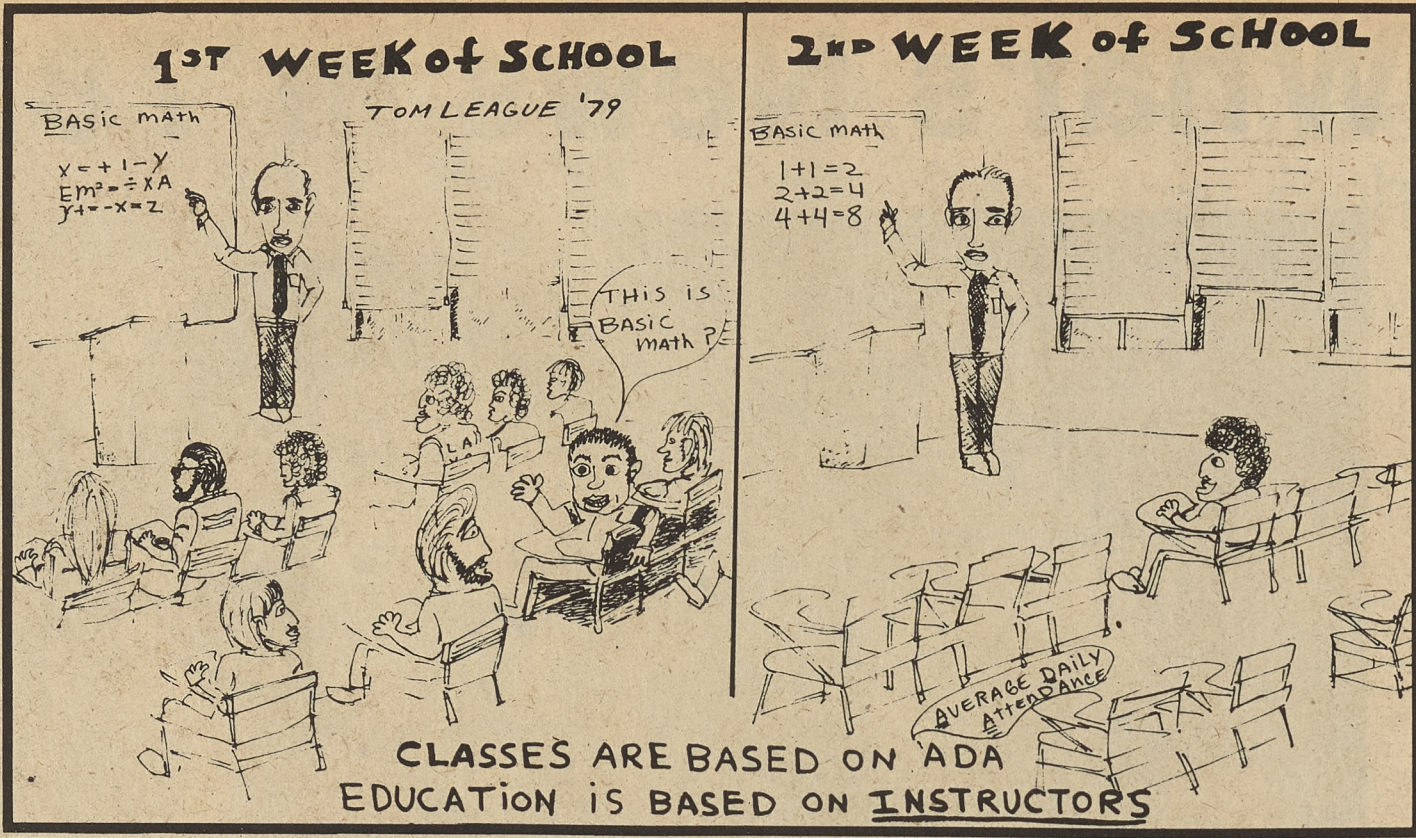 1ST WEEK of SCHOOL
TOM LEAGUE '79
BASIC MATH
X = + 1 - Y
Em² = ÷ XA
y + = - X = Z
THIS IS
BASIC
MATH?
L.A.
2ND WEEK of SCHOOL
BASIC MATH
1+1=2
2+2=4
4+4=8
AVERAGE DAILY
AttenDANCE
CLASSES ARE BASED ON ADA
EDUCATION iS BASED ON INSTRUCTORS